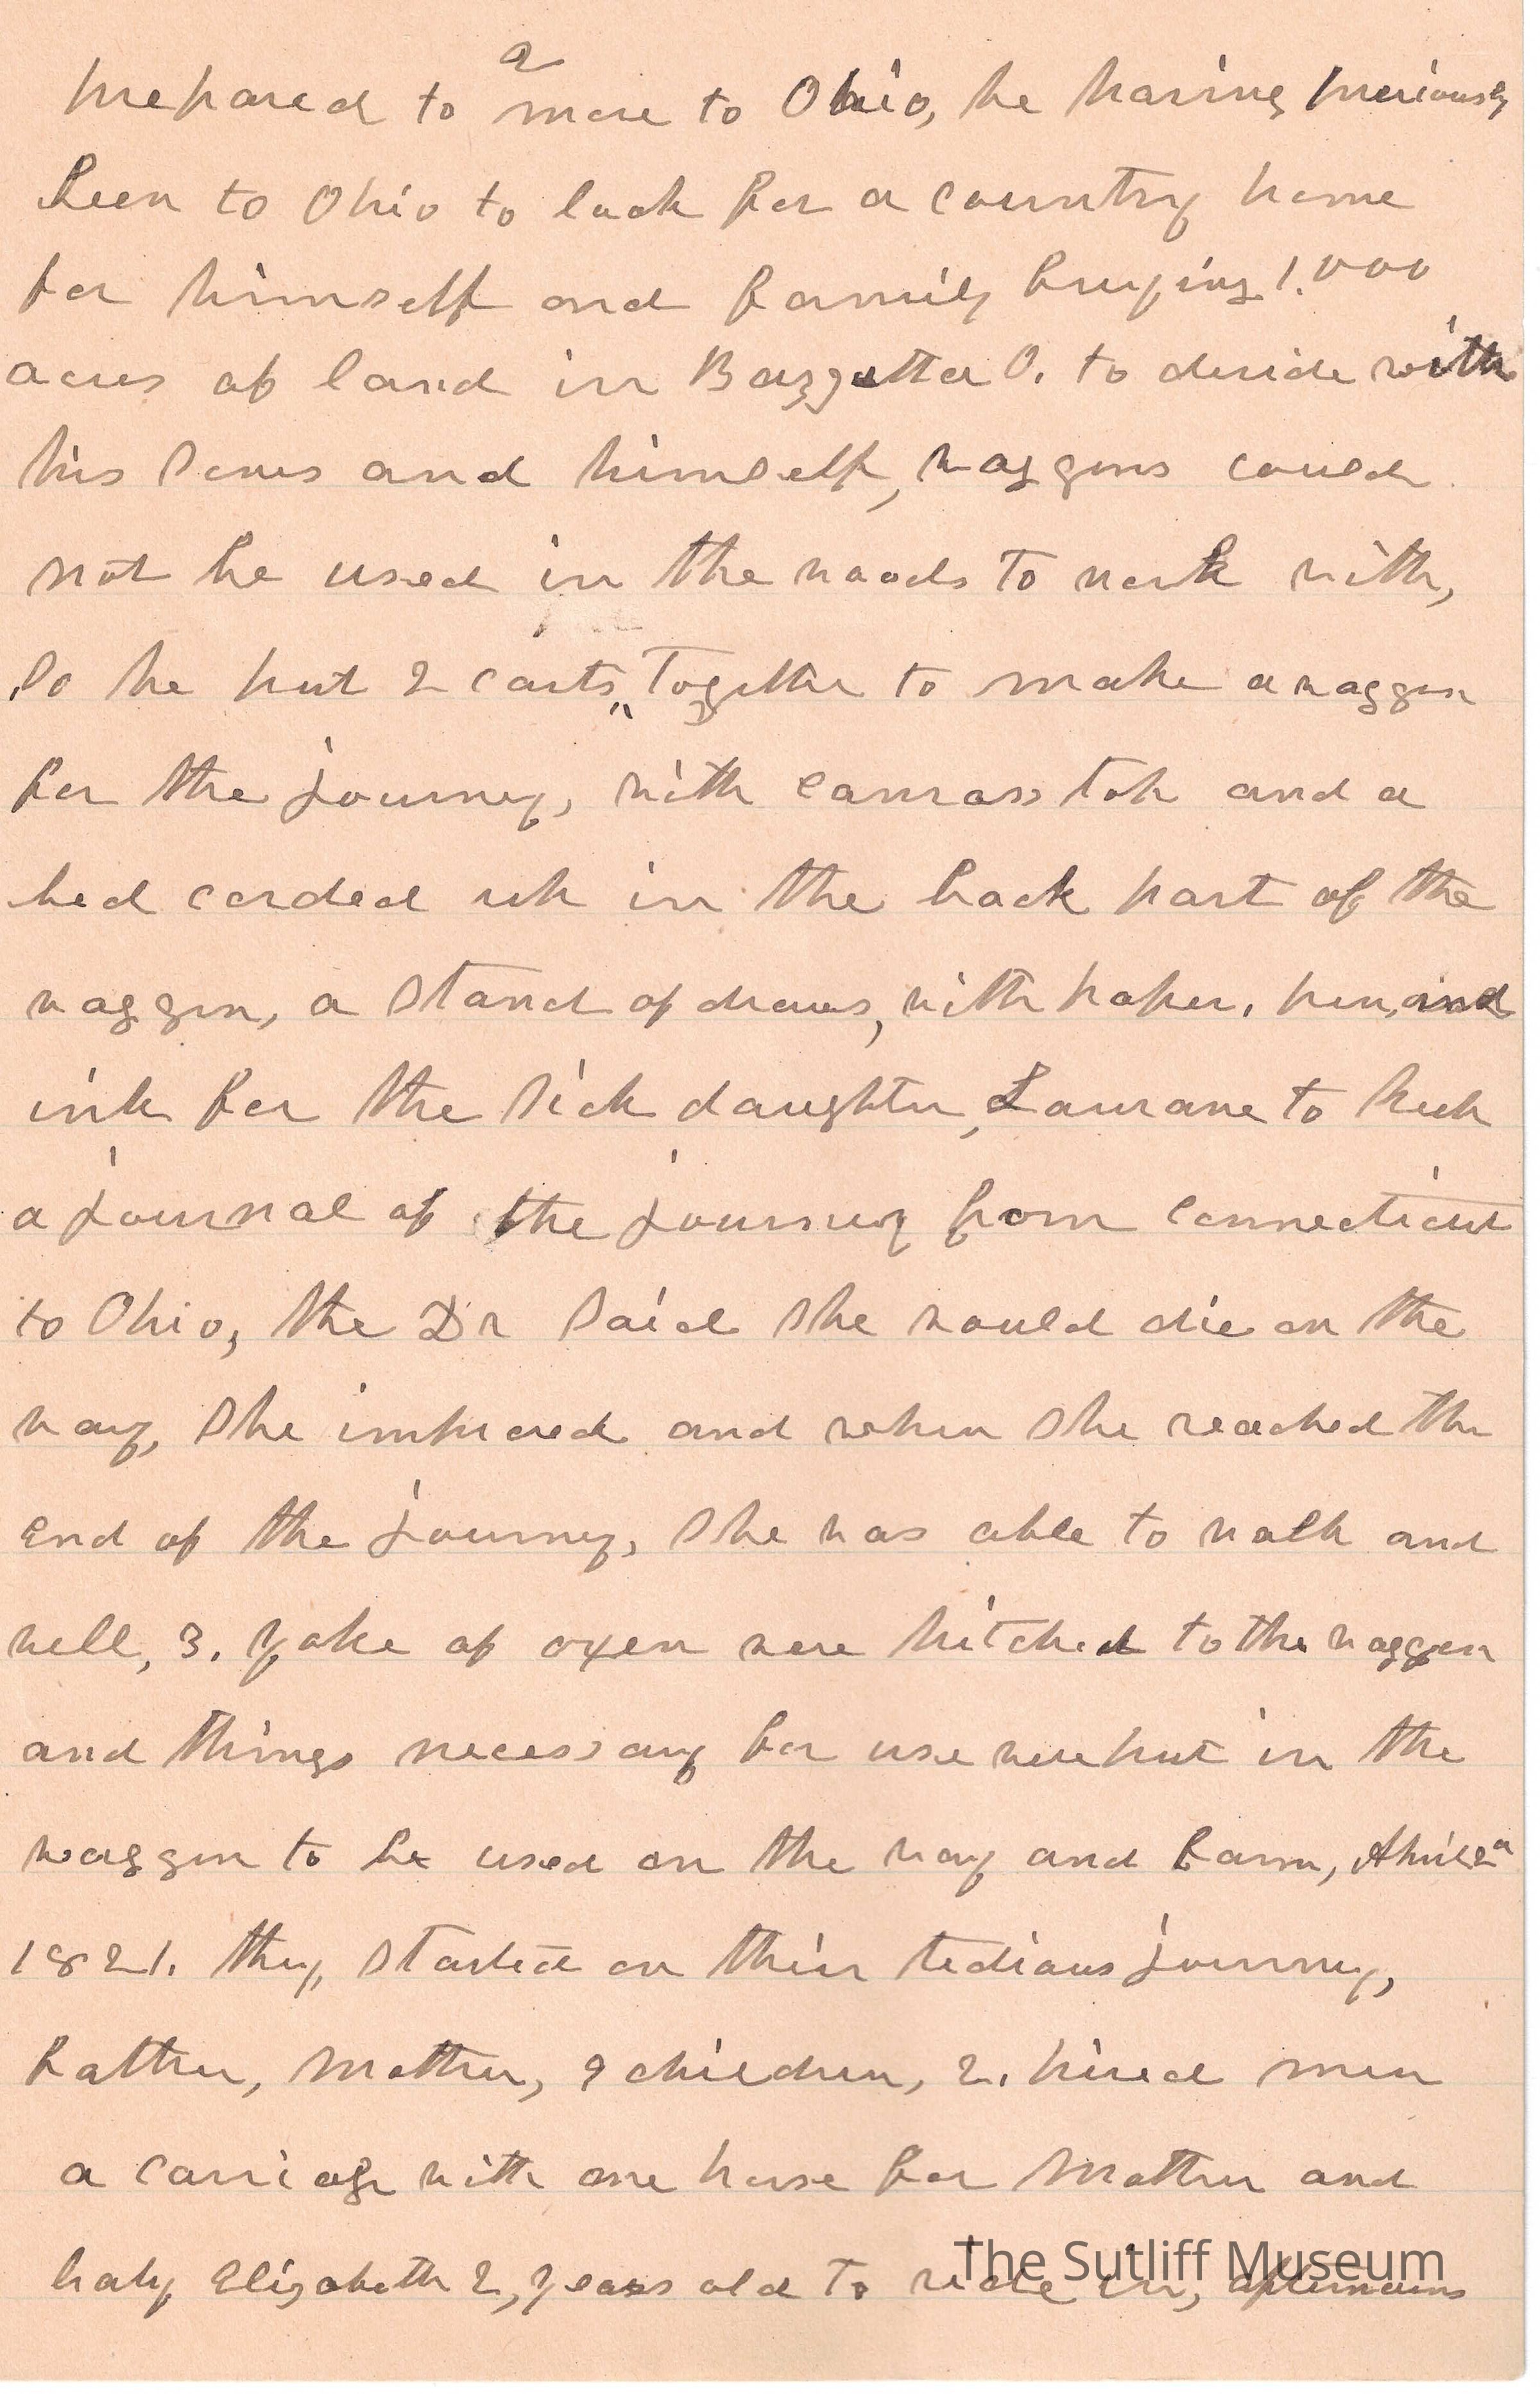 2
prepared to move to Ohio, he having previously
been to Ohio to look for a country home
for himself and family buying 1.000
acres of land in Bazzetta O. to devide with
his sons and himself, waggons could
not be used in the woods to work with,
so he put 2 carts,, together to make a waggon
for the journey, with canvass top and a
bed corded up in the back part of the
waggon, a stand of draws, with paper, pen, and
ink for the sick daughter, Laurane to keep
a journal of the journey from Connecticut
to Ohio, the Dr said she would die on the
way, she improved and when she reached the
end of the journey, she was able to walk and
well, 3. yoke of oxen were hitched to the waggon
and things necessary for use were put in the
waggon to be used on the way and farm, April 2
1821. they started on their tedious journey,
father, mother, 9 children, 2, hired men
a carriage with one horse for mother and
baby Elizabeth 2, years old to ride in, afterwards
The Sutliff Museum